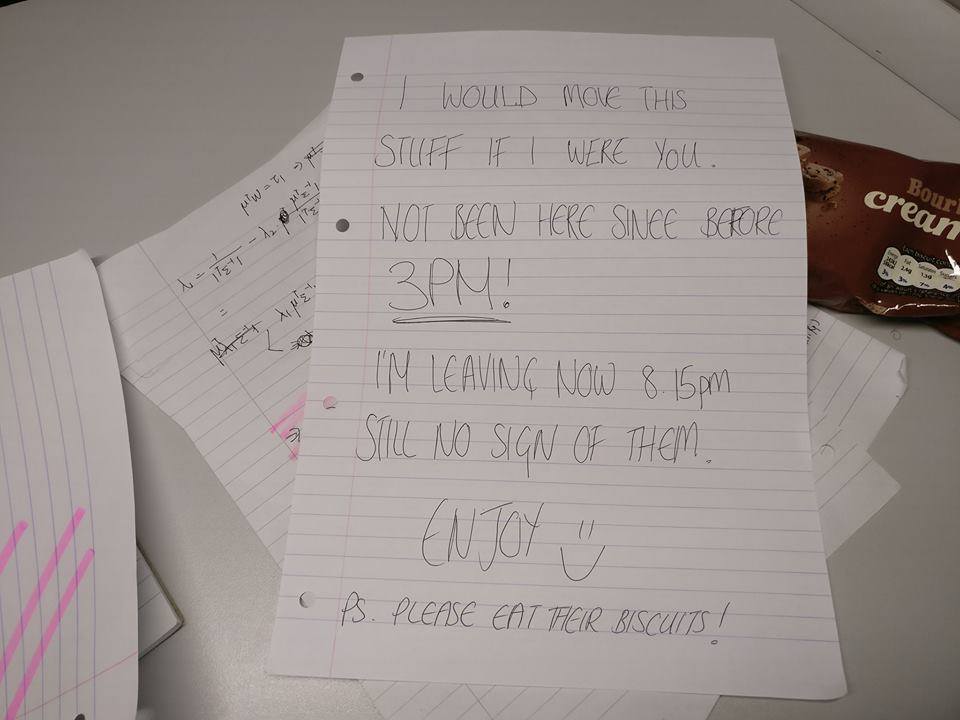 I WOULD MOVE THIS
STUFF IF I WERE YOU.
NOT BEEN HERE SINCE BEFORE
3PM!
I'M LEAVING NOW 8.15pm
STILL NO SIGN OF THEM.
ENJOY :)
PS. PLEASE EAT THEIR BISCUITS!
Bour
cream